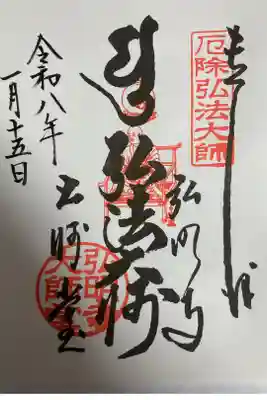 奉拝
厄除弘法大師
弘明寺
弘法大師
令和八年
一月十五日